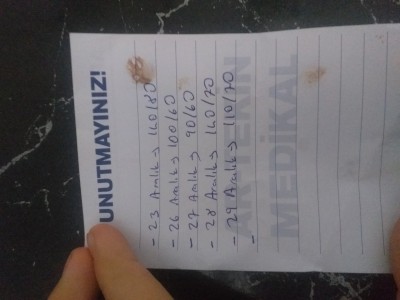 UNUTMAYINIZ!
- 23 Aralık → 140/80
- 26 Aralık → 100/60
- 27 Aralık → 90/60
- 28 Aralık → 140/70
- 29 Aralık → 110/70
-
MEDİKAL